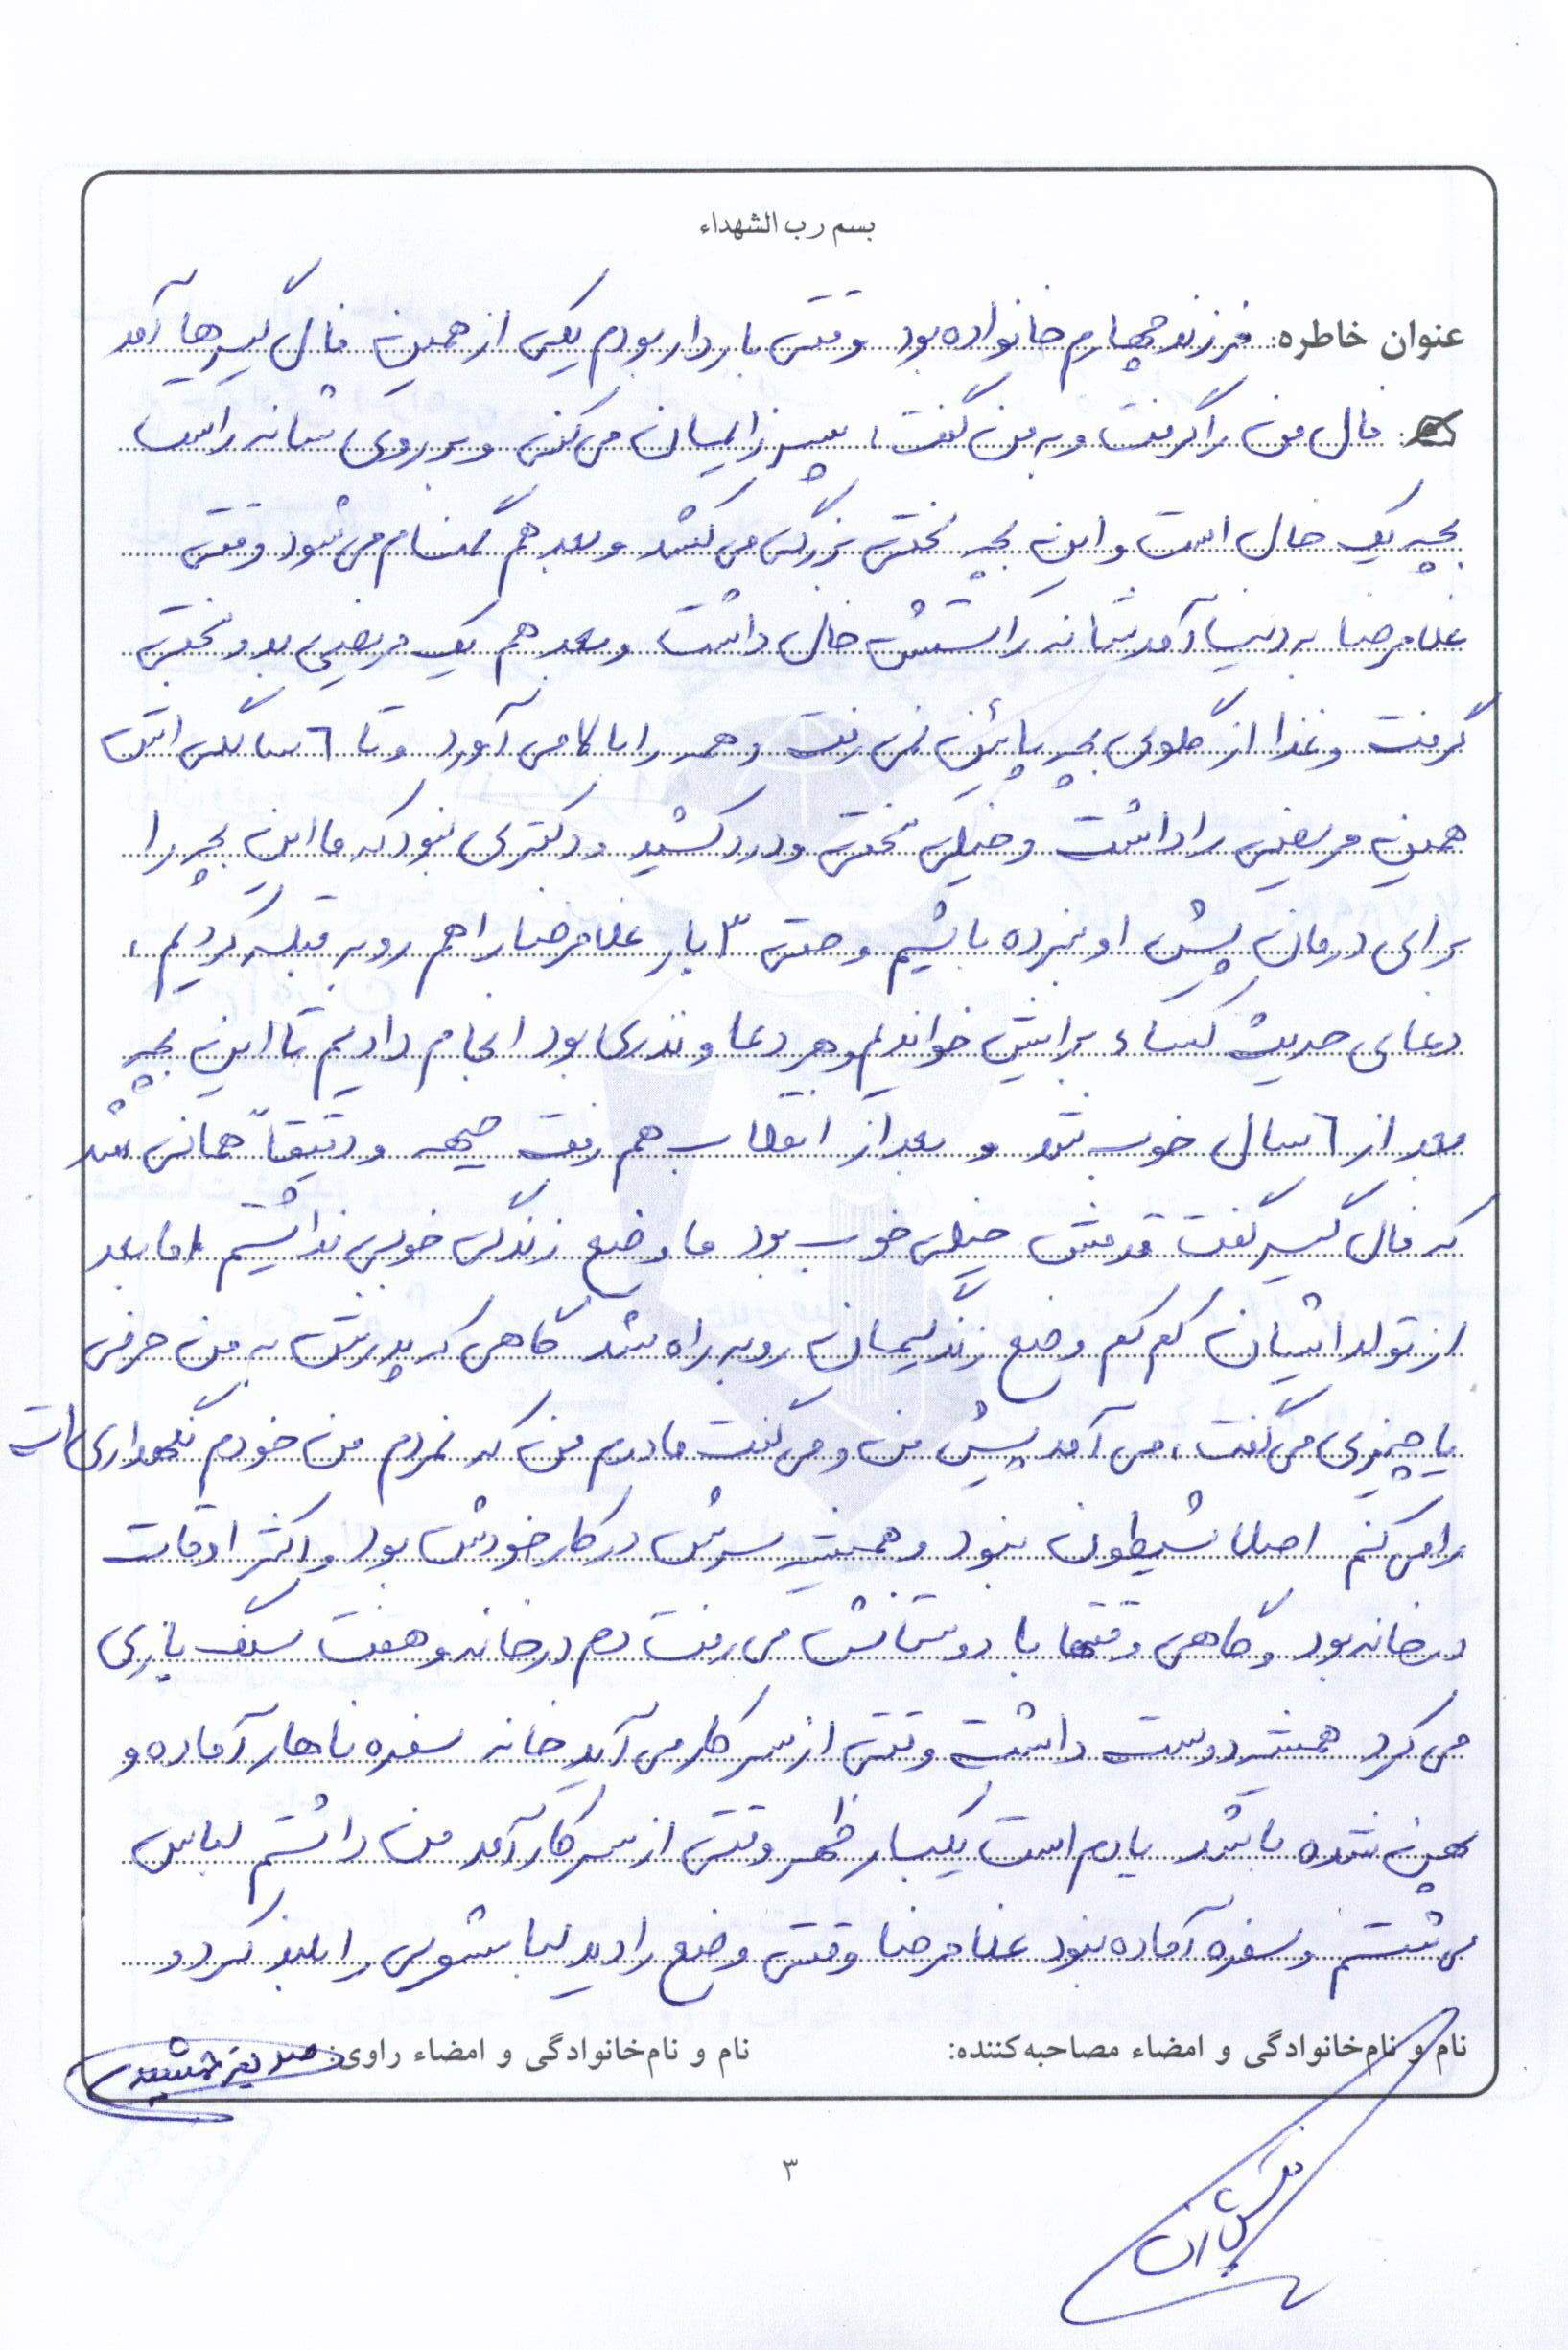 بسم رب الشهداء
عنوان خاطره: فرزند چهارم خانواده بود وقتی باردار بودم یکی از همین فال گیرها آمد
فال من را گرفت و به من گفت، پسر زایمان می کنی و بر روی شانه راست
بچه یک خال است و این بچه سختی بزرگی می کشد و بعد هم گمنام می شود وقتی
غلامرضا به دنیا آمد شانه راستش خال داشت و بعد هم یک مریضی بد و سختی
گرفت و غذا از گلوی بچه پائین نمی رفت و همه را بالا می آورد و تا ٦ سالگی اش
همین مریضی را داشت و خیلی سختی و درد کشید و دکتری نبود که ما این بچه را
برای درمان پیش او نبرده باشیم و حتی ٣ بار غلامرضا را هم رو به قبله کردیم،
دعای حدیث کساء برایش خواندیم و هر دعا و نذری بود انجام دادیم تا این بچه
بعد از ٦ سال خوب شد و بعد از انقلاب هم رفت جبهه و دقیقاً همانی شد
که فال گیر گفت قدمش خیلی خوب بود ما وضع زندگی خوبی نداشتیم اما بعد
از تولد ایشان کم کم وضع زندگیمان رو به راه شد گاهی که پدرش به من حرفی
یا چیزی می گفت، می آمد پیش من و می گفت مادرم من که نمردم من خودم نگهداری ات
را می کنم اصلا شیطون نبود و همیشه سرش در کار خودش بود و اکثر اوقات
در خانه بود و گاهی وقتها با دوستانش می رفت دم در خانه و هفت سنگ بازی
می کرد همیشه دوست داشت وقتی از سر کار می آید خانه سفره ناهار آماده و
پهن شده باشد یادم است یکبار ظهر وقتی از سر کار آمد من داشتم لباس
می شستم و سفره آماده نبود غلامرضا وقتی وضع را دید لباسشویی را بلند کرد و
نام و نام‌خانوادگی و امضاء مصاحبه‌کننده:
نام و نام‌خانوادگی و امضاء راوی: صدیقه جمشیدی
٣